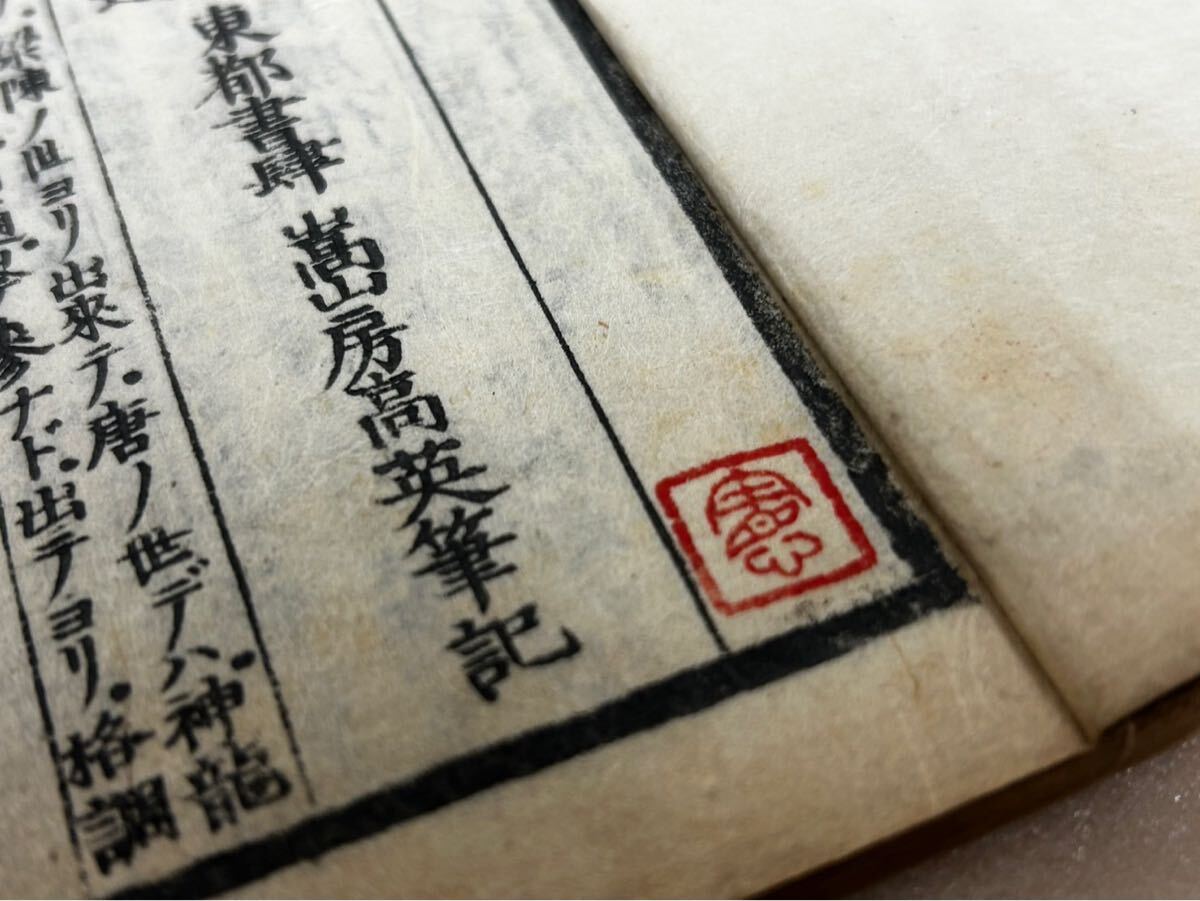 東都書肆 嵩山房高英筆記
出來テ。唐ノ世デハ。神龍
陳ノ世ヨリ
參ナド。出テヨリ。格調